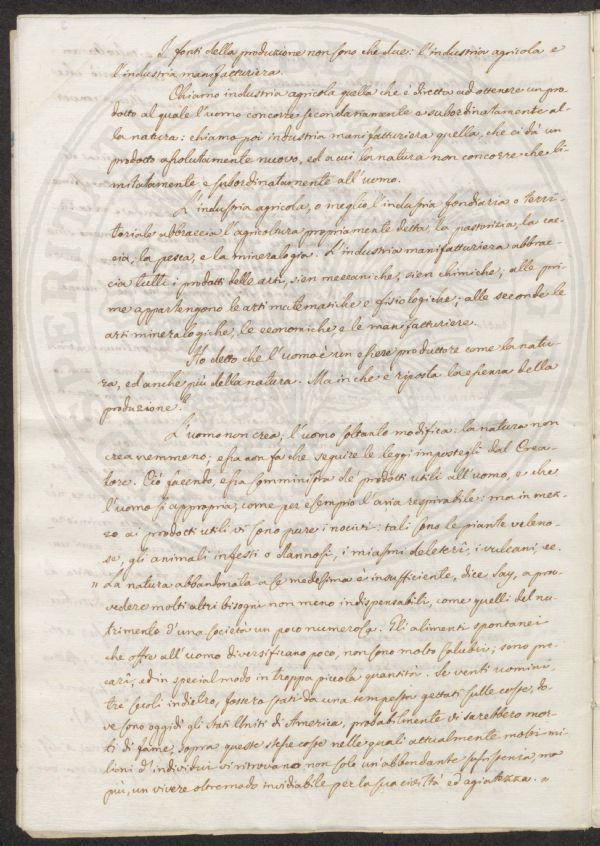 I fonti della produzione non sono che due: l'industria agricola e
l'industria manifatturiera.
Chiamo industria agricola quella che è diretta ad ottenere un pro-
dotto al quale l'uomo concorre secondariamente e subordinatamente al-
la natura: chiamo poi industria manifatturiera quella, che ci dà un
prodotto assolutamente nuovo, ed a cui la natura non concorre che li-
mitatamente e subordinatamente all'uomo.
L'industria agricola, o meglio l'industria fondiaria o terri-
toriale abbraccia l'agricoltura propriamente detta, la pastorizia, la cac-
cia, la pesca, e la mineralogia. L'industria manifatturiera abbrac-
cia tutti i prodotti delle arti, sien meccaniche, sien chimiche; alle pri-
me appartengono le arti matematiche e fisiologiche; alle seconde le
arti mineralogiche, le economiche e le manifatturiere.
Ho detto che l'uomo è un essere produttore come la natu-
ra, ed anche più della natura. Ma in che è riposta la essenza della
produzione?
L'uomo non crea; l'uomo soltanto modifica: la natura non
crea nemmeno; essa non fa che seguire le leggi impostegli dal Crea-
tore. Ciò facendo, essa somministra de' prodotti utili all'uomo, e che
l'uomo si appropria, come per esempio l'aria respirabile: ma in mez-
zo a' prodotti utili vi sono pure i nocivi: tali sono le piante veleno-
se, gli animali infesti o dannosi, i miasmi deleterî, i vulcani, ec.
" La natura abbandonata a se medesima è insufficiente, dice Say, a prov-
vedere molti altri bisogni non meno indispensabili, come quelli del nu-
trimento d'una società un poco numerosa. Gli alimenti spontanei
che offre all'uomo diversificano poco, non sono molto salubri; sono pre-
carî, ed in special modo in troppa piccola quantità. Se venti uomini,
tre secoli indietro, fossero stati da una tempesta gettati sulle coste, do-
ve sono oggidì gli Stati Uniti di America, probabilmente vi sarebbero mor-
ti di fame, sopra queste stesse coste nelle quali attualmente molti mi-
lioni d'individui vi ritrovano non solo un'abbondante sussistenza, ma
più, un vivere oltremodo invidiabile per la sua civiltà ed agiatezza. "